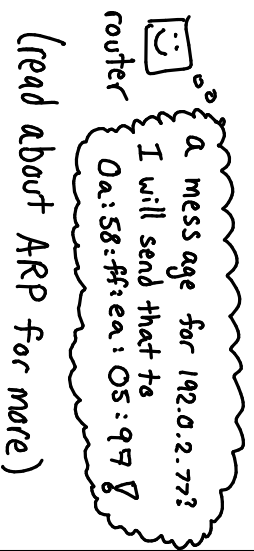 router
a message for 192.0.2.77?
I will send that to
0a:58:ff:ea:05:97!
(read about ARP for more)